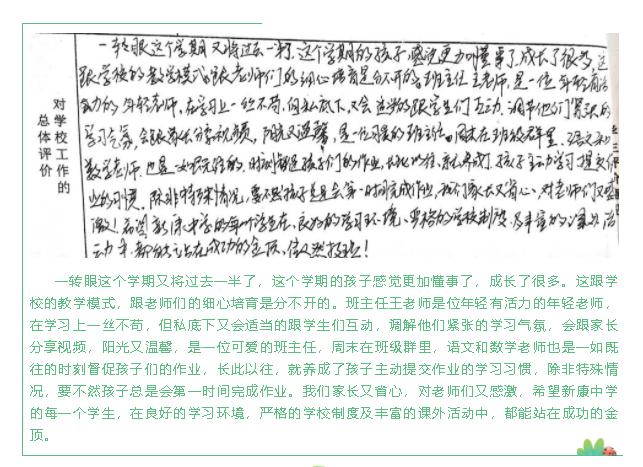 对学校工作的
总体评价
一转眼这个学期又将过去一半了,这个学期的孩子,感觉更加懂事了,成长了很多,这
跟学校的教学模式,跟老师们的细心培育是分不开的。班主任王老师,是一位年轻有活
力的年轻老师,在学习上一丝不苟,但私底下,又会适当的跟学生们互动,调解他们紧张的
学习气氛,会跟家长分享视频,阳光又温馨,是一位可爱的班主任。周末在班级群里,语文和
数学老师,也是一如既往的,时刻督促孩子们的作业,长此以往,就养成了孩子主动学习提交作
业的习惯,除非特殊情况,要不然孩子总是会第一时间完成作业,我们家长又省心,对老师们又感
激!希望新康中学的每一个学生在,良好的学习环境,严格的学校制度,及丰富的课外活
动中,都能站在成功的金顶,
一转眼这个学期又将过去一半了，这个学期的孩子感觉更加懂事了，成长了很多。这跟学
校的教学模式，跟老师们的细心培育是分不开的。班主任王老师是位年轻有活力的年轻老师，
在学习上一丝不苟，但私底下又会适当的跟学生们互动，调解他们紧张的学习气氛，会跟家长
分享视频，阳光又温馨，是一位可爱的班主任，周末在班级群里，语文和数学老师也是一如既
往的时刻督促孩子们的作业，长此以往，就养成了孩子主动提交作业的学习习惯，除非特殊情
况，要不然孩子总是会第一时间完成作业。我们家长又省心，对老师们又感激，希望新康中学
的每一个学生，在良好的学习环境，严格的学校制度及丰富的课外活动中，都能站在成功的金
顶。